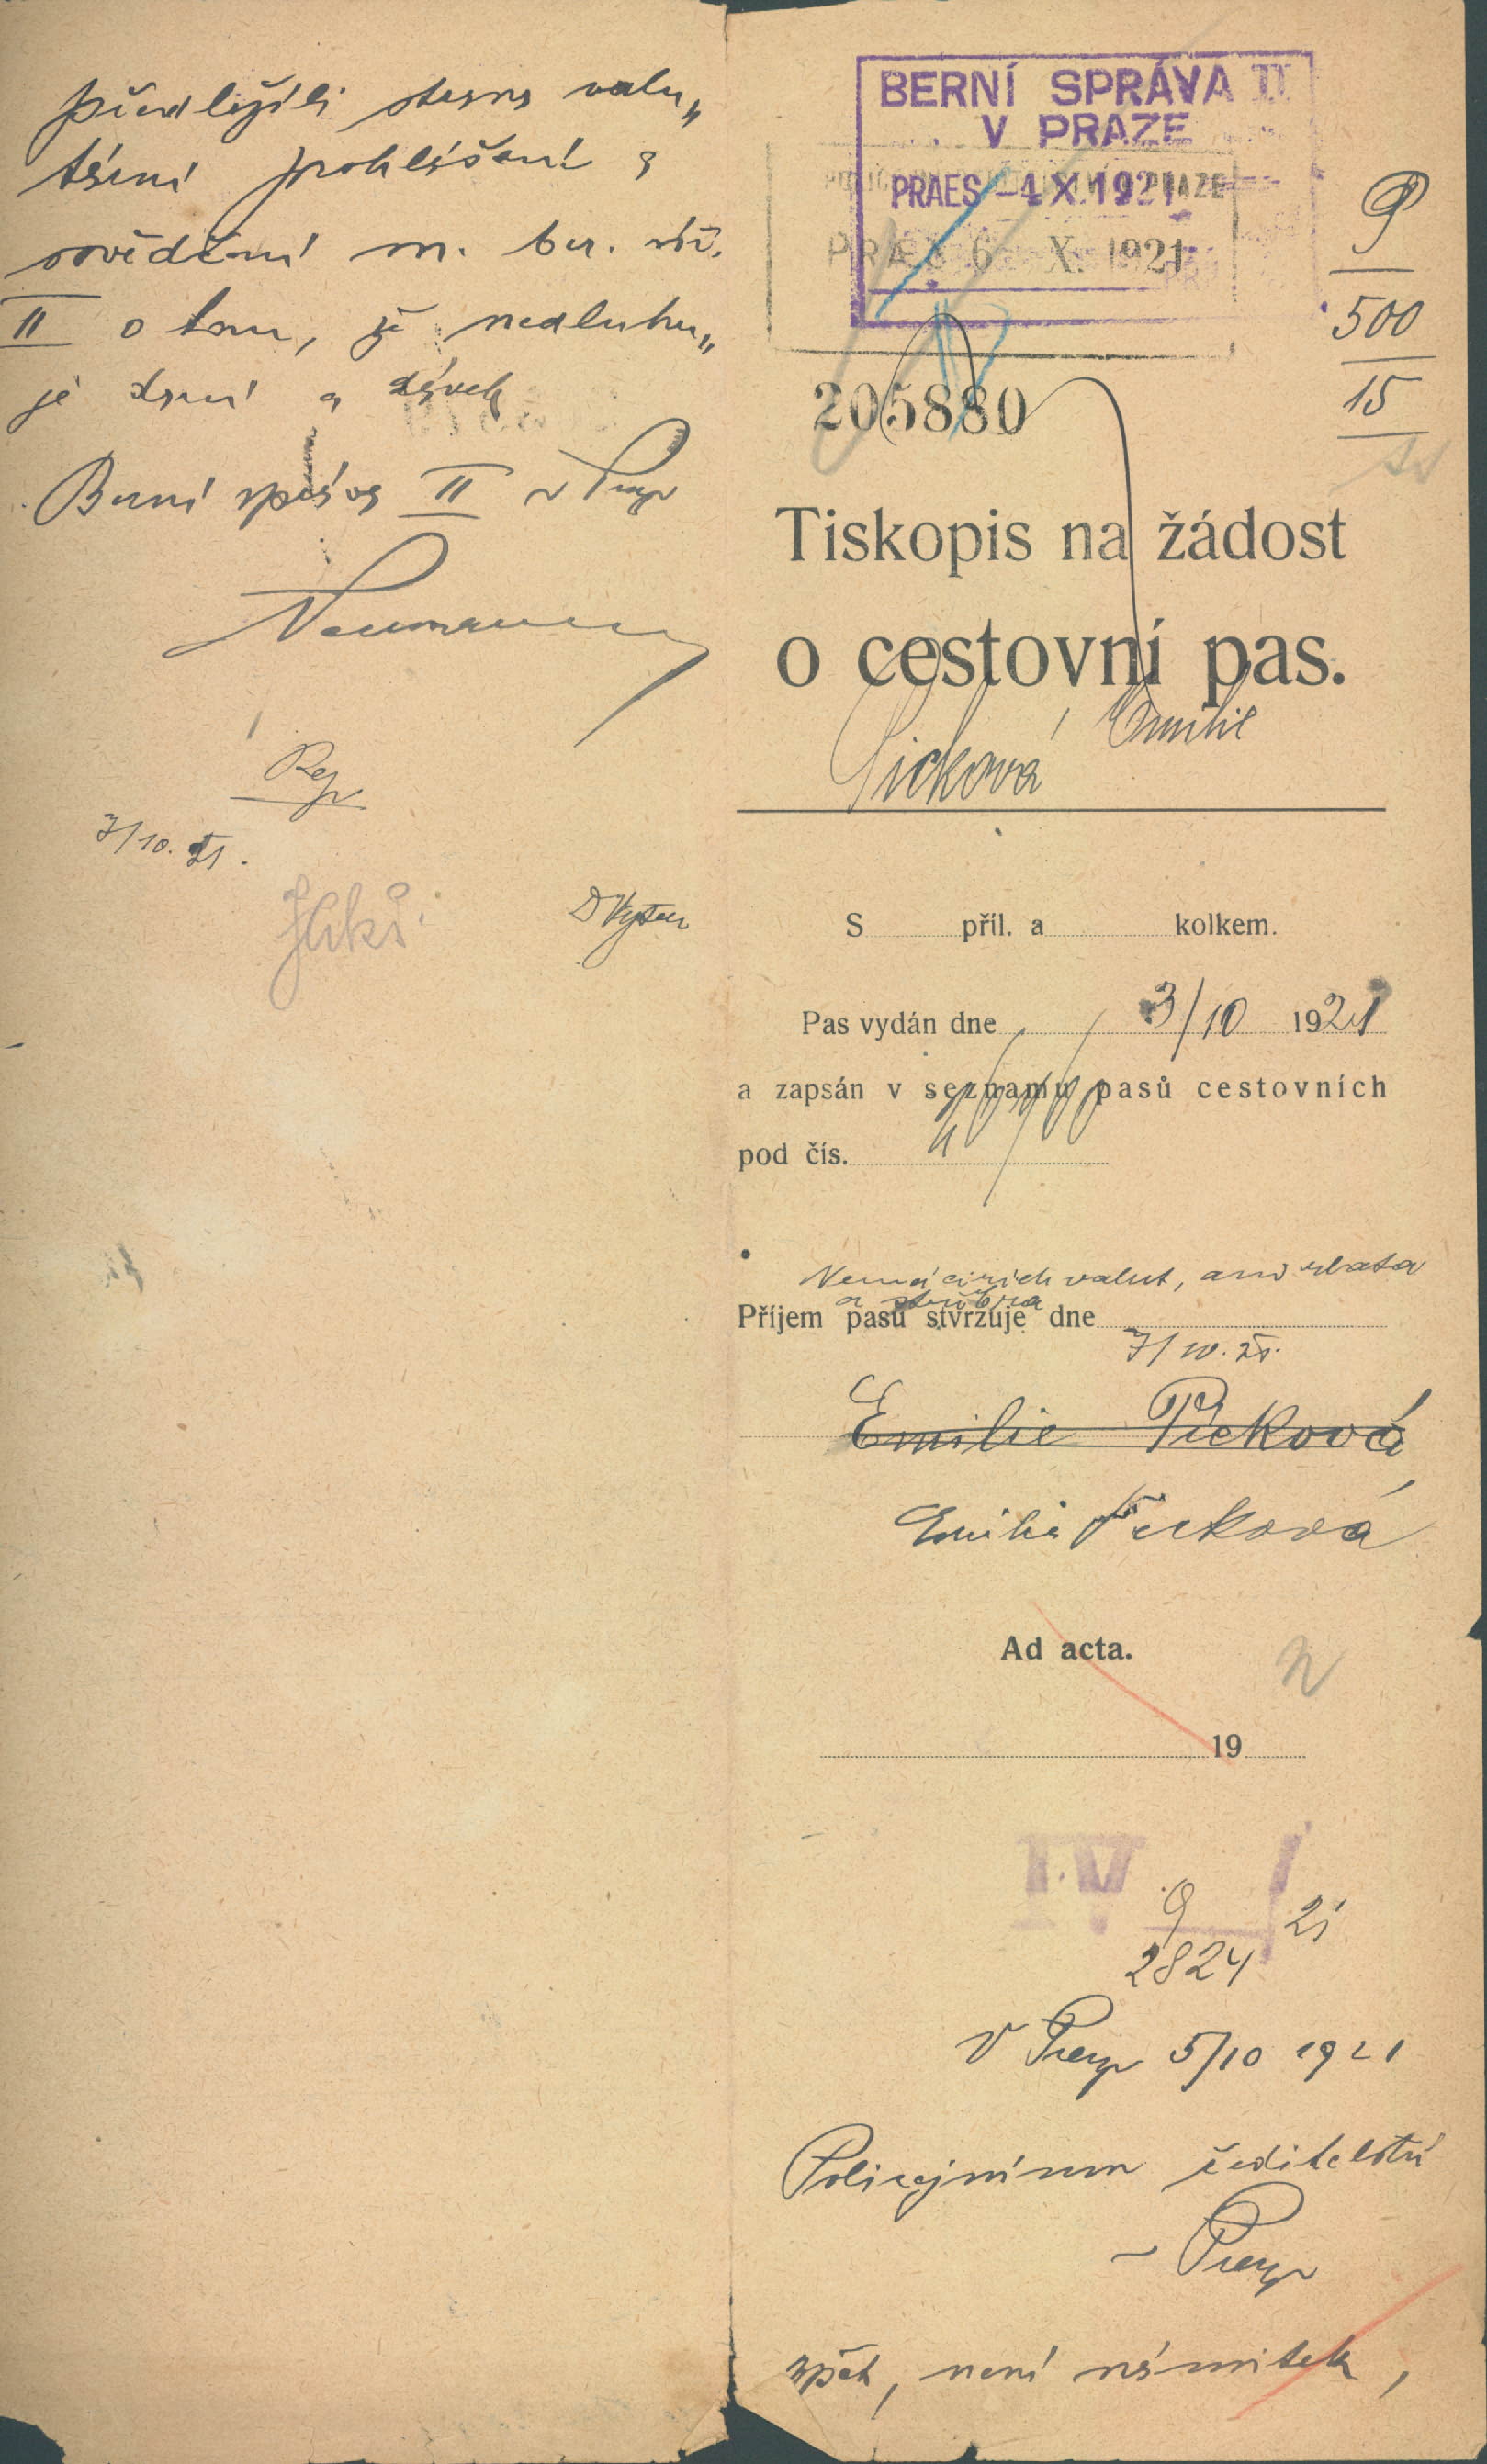 předložili stran valu„
tární prohlášení a
osvědčení m. ber. úř.
II o tom, že nedluhu„
je daní a dávek
Berní správa II v Praze
Neumann
7/10. 21.
BERNÍ SPRÁVA II
V PRAZE
PRAES -4 X. 1921
PRAES 6 X. 1921
9
500
15
205880
Tiskopis na žádost
o cestovní pas.
Picková Emilie
S příl. a kolkem.
Pas vydán dne 3/10 1921
a zapsán v seznamu pasů cestovních
pod čís.
Nemá cizích valut, ani zlata
a stříbra
Příjem pasu stvrzuje dne
7/10. 21.
Emilie Picková
Emilie Picková
Ad acta.
19
IV 9 / 21
2824
V Praze 5/10 1921
Policejnímu ředitelství
v Praze
zpět, není námitek,